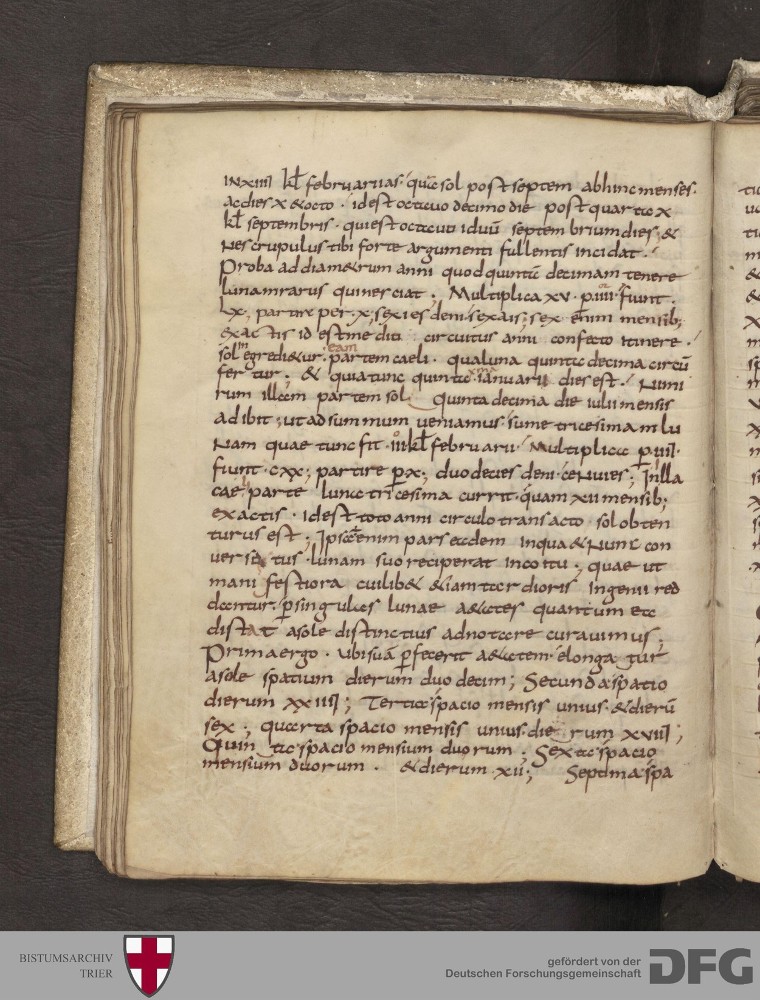 IN XIIII kł februarias · quae sol post septem abhinc menses ·
ac dies x & octo · id est octauo decimo die post quarta x
kł septembris · qui est octauus iduū septembrium dies ; &
Ne scrupulus tibi forte argumenti fullentis incidat .
Proba ad diam&rum anni quod quintā decimam tenere
lunam rarus quis nesciat ; Multiplica xv · p · iiii · fiunt ·
Lx ; partire per · x ; sexies deni · sexaīs ; sex enīm mensib ;
exactis id est medio circuitus anni confecto itinere ·
sol egredi&ur · eam partem caeli · qua luna quinta decima circū
fer tur ; & quia tunc quinta · xma ianuarii dies est · Nunc
rum illam partem sol quinta decima die iulii mensis
ad ibit ; ut ad summum ueniamus · sume tricesimam lu
Nam quae tunc fit · iii kł februarii · Multiplica p · iiii ·
fiunt · cxx ; partire p x ; duodecies deni · ce Nuies ; In illa
caeli parte luna tricesima currit · quam xii mensib ;
exactis · id est toto anni circulo transacto sol obten
turus est ; Ipsa enim pars eadem in qua & Nunc con
uersa tus · lunam suo reciperat incoitu ; quae ut
mani festiora cuilib& &iam tardioris ingenii red
dantur · p singulas lunae aetates quantum ea
distat a sole distinctius adnotare curauimus ;
Prima ergo · ubi suā pfecerit aetatem · elonga tur
a sole spatium dierum duodecim ; Secunda spatio
dierum xxiiii ; Tertia spacio mensis unius · & dierū
sex ; quarta spacio mensis unius · die rum xviii ;
Quin ta spacio mensium duorum ; Sexta spacio
mensium duorum · & dierum xii ; Septima spa
BISTUMSARCHIV
TRIER
gefördert von der
Deutschen Forschungsgemeinschaft
DFG